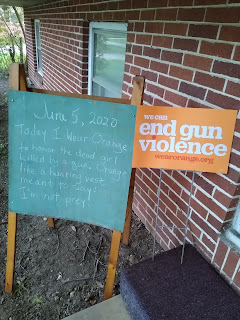 June 5, 2020
Today I Wear Orange
to honor the dead girl
killed by a
like a hunting vest
meant to say:
I'm not prey!
we can
end gun
violence
wearorange.org